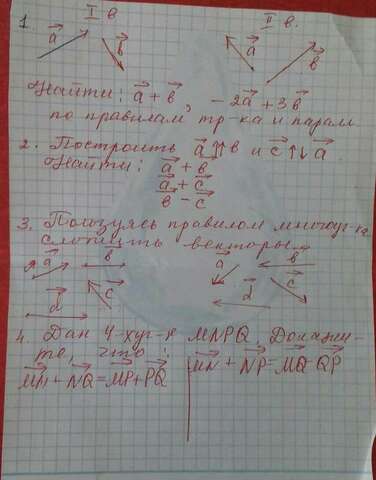 I в II в.
1. a b a b
Найти: a + b, -2a + 3b
по правилам тр-ка и парал.
2. Построить a ↑↑ b и c ↑↓ a
Найти: a + b
a + c
b - c
3. Пользуясь правилом многоуг-ка
сложить векторы
a b a b
d c d c
4. Дан 4-хуг-к MNPQ. Докажи-
те, что:
MN + NQ = MP + PQ MN + NP = MQ + QP